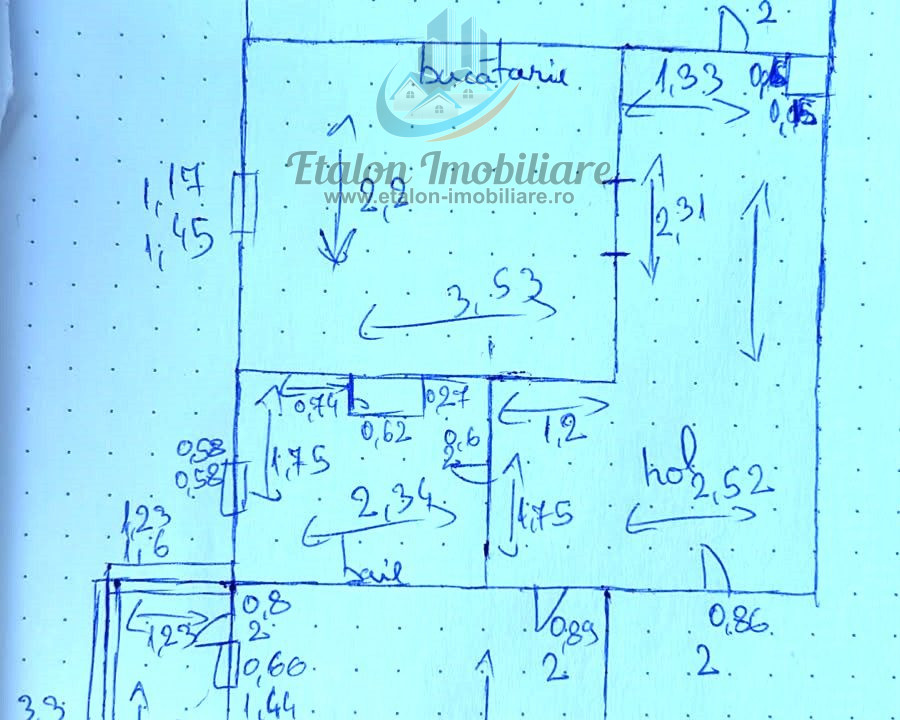 2
bucătarie
1,33
Etalon Imobiliare
www.etalon-imobiliare.ro
1,17
1,45
2,2
2,31
3,53
0,74
0,27
0,62
0,6
2
1,2
0,58
0,58
1,75
hol
2,52
2,34
1,75
1,23
1,6
baie
0,8
2
1,23
0,66
1,44
0,89
2
0,86
2
3,3